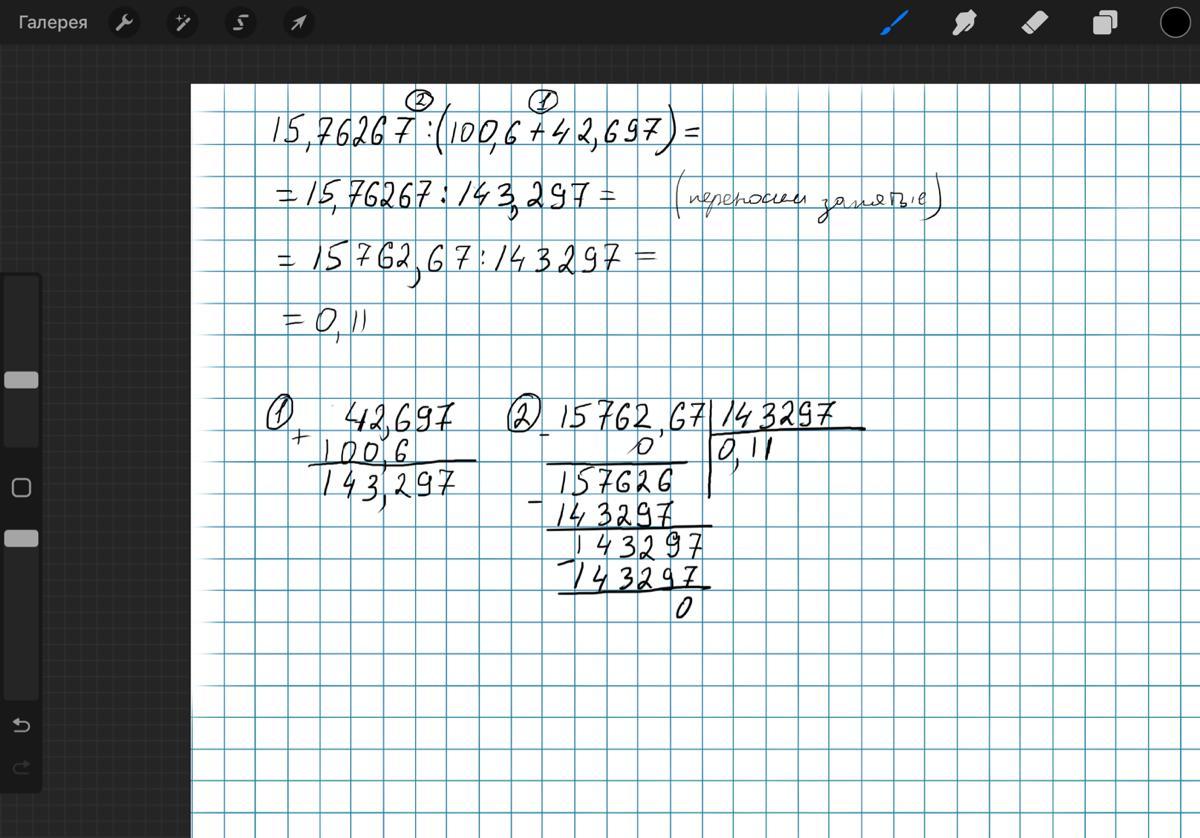 Галерея
② ①
15,76267:(100,6+42,697)=
=15,76267:143,297= (переносим запятые)
=15762,67:143297=
=0,11
①
42,697
+
100,6
143,297
② 15762,67|143297
-
0 0,11
157626
-
143297
143297
-
143297
0